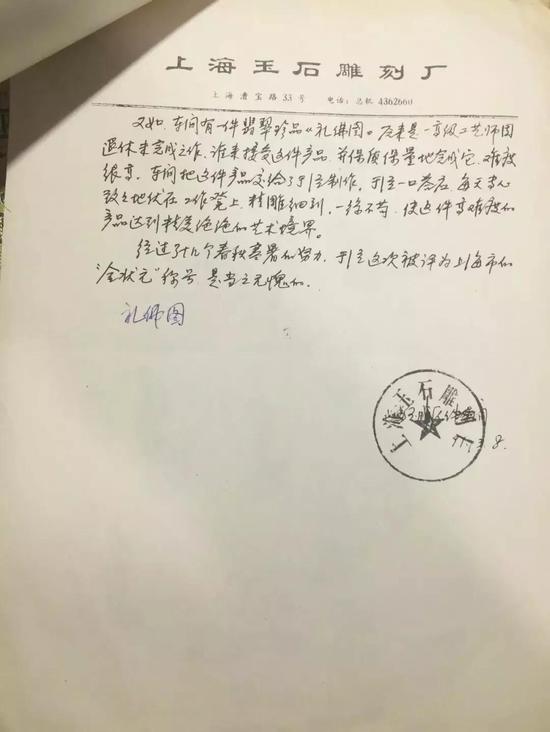 上海玉石雕刻厂
上海漕宝路33号 电话:总机 4362660
又如,车间有一件翡翠珍品《礼佛图》原来是一高级工艺师因
退休未完成之作,谁来接受这件产品,并保质保量地完成它,难度
很高,车间把这件产品交给了于泾制作,于泾一口答应,每天专心
致之地伏在工作凳上,精雕细刻,一丝不苟,使这件高难度的
产品达到精美绝伦的艺术境界。
经过了十几个春秋寒暑的努力,于泾这次被评为上海市的
"金状元"称号,是当之无愧的。
礼佛图
上海玉石雕刻厂
3.8.